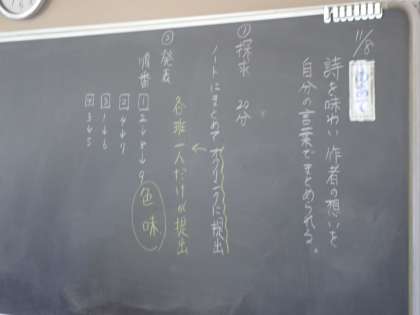 11/8
めあて
詩を味わい 作者の想いを
自分の言葉でまとめられる。
① 探求 20分
ノートにまとめて ポクリンクに提出
各班 一人だけが提出
② 発表
順番
1 2→8→9
2 4→7
3 1→6
4 3→5
色味